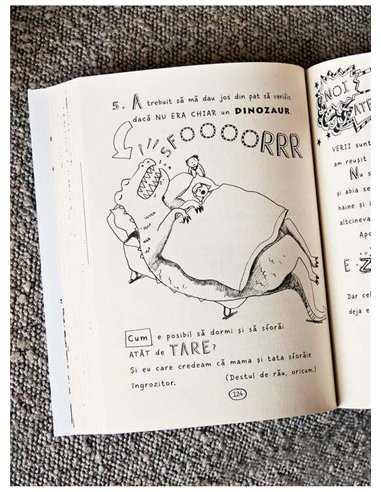 5. A trebuit să mă dau jos din pat să verific
dacă NU ERA CHIAR un DINOZAUR.
SFOOOORRR
Cum e posibil să dormi și să sforăi
ATÂT de TARE?
Și eu care credeam că mama și tata sforăie
îngrozitor. (Destul de rău, oricum.)
124
NOI
VERII sunt
am reușit
și abia se
haine și i
altcineva
Apo
E Z
Dar cel
deja e